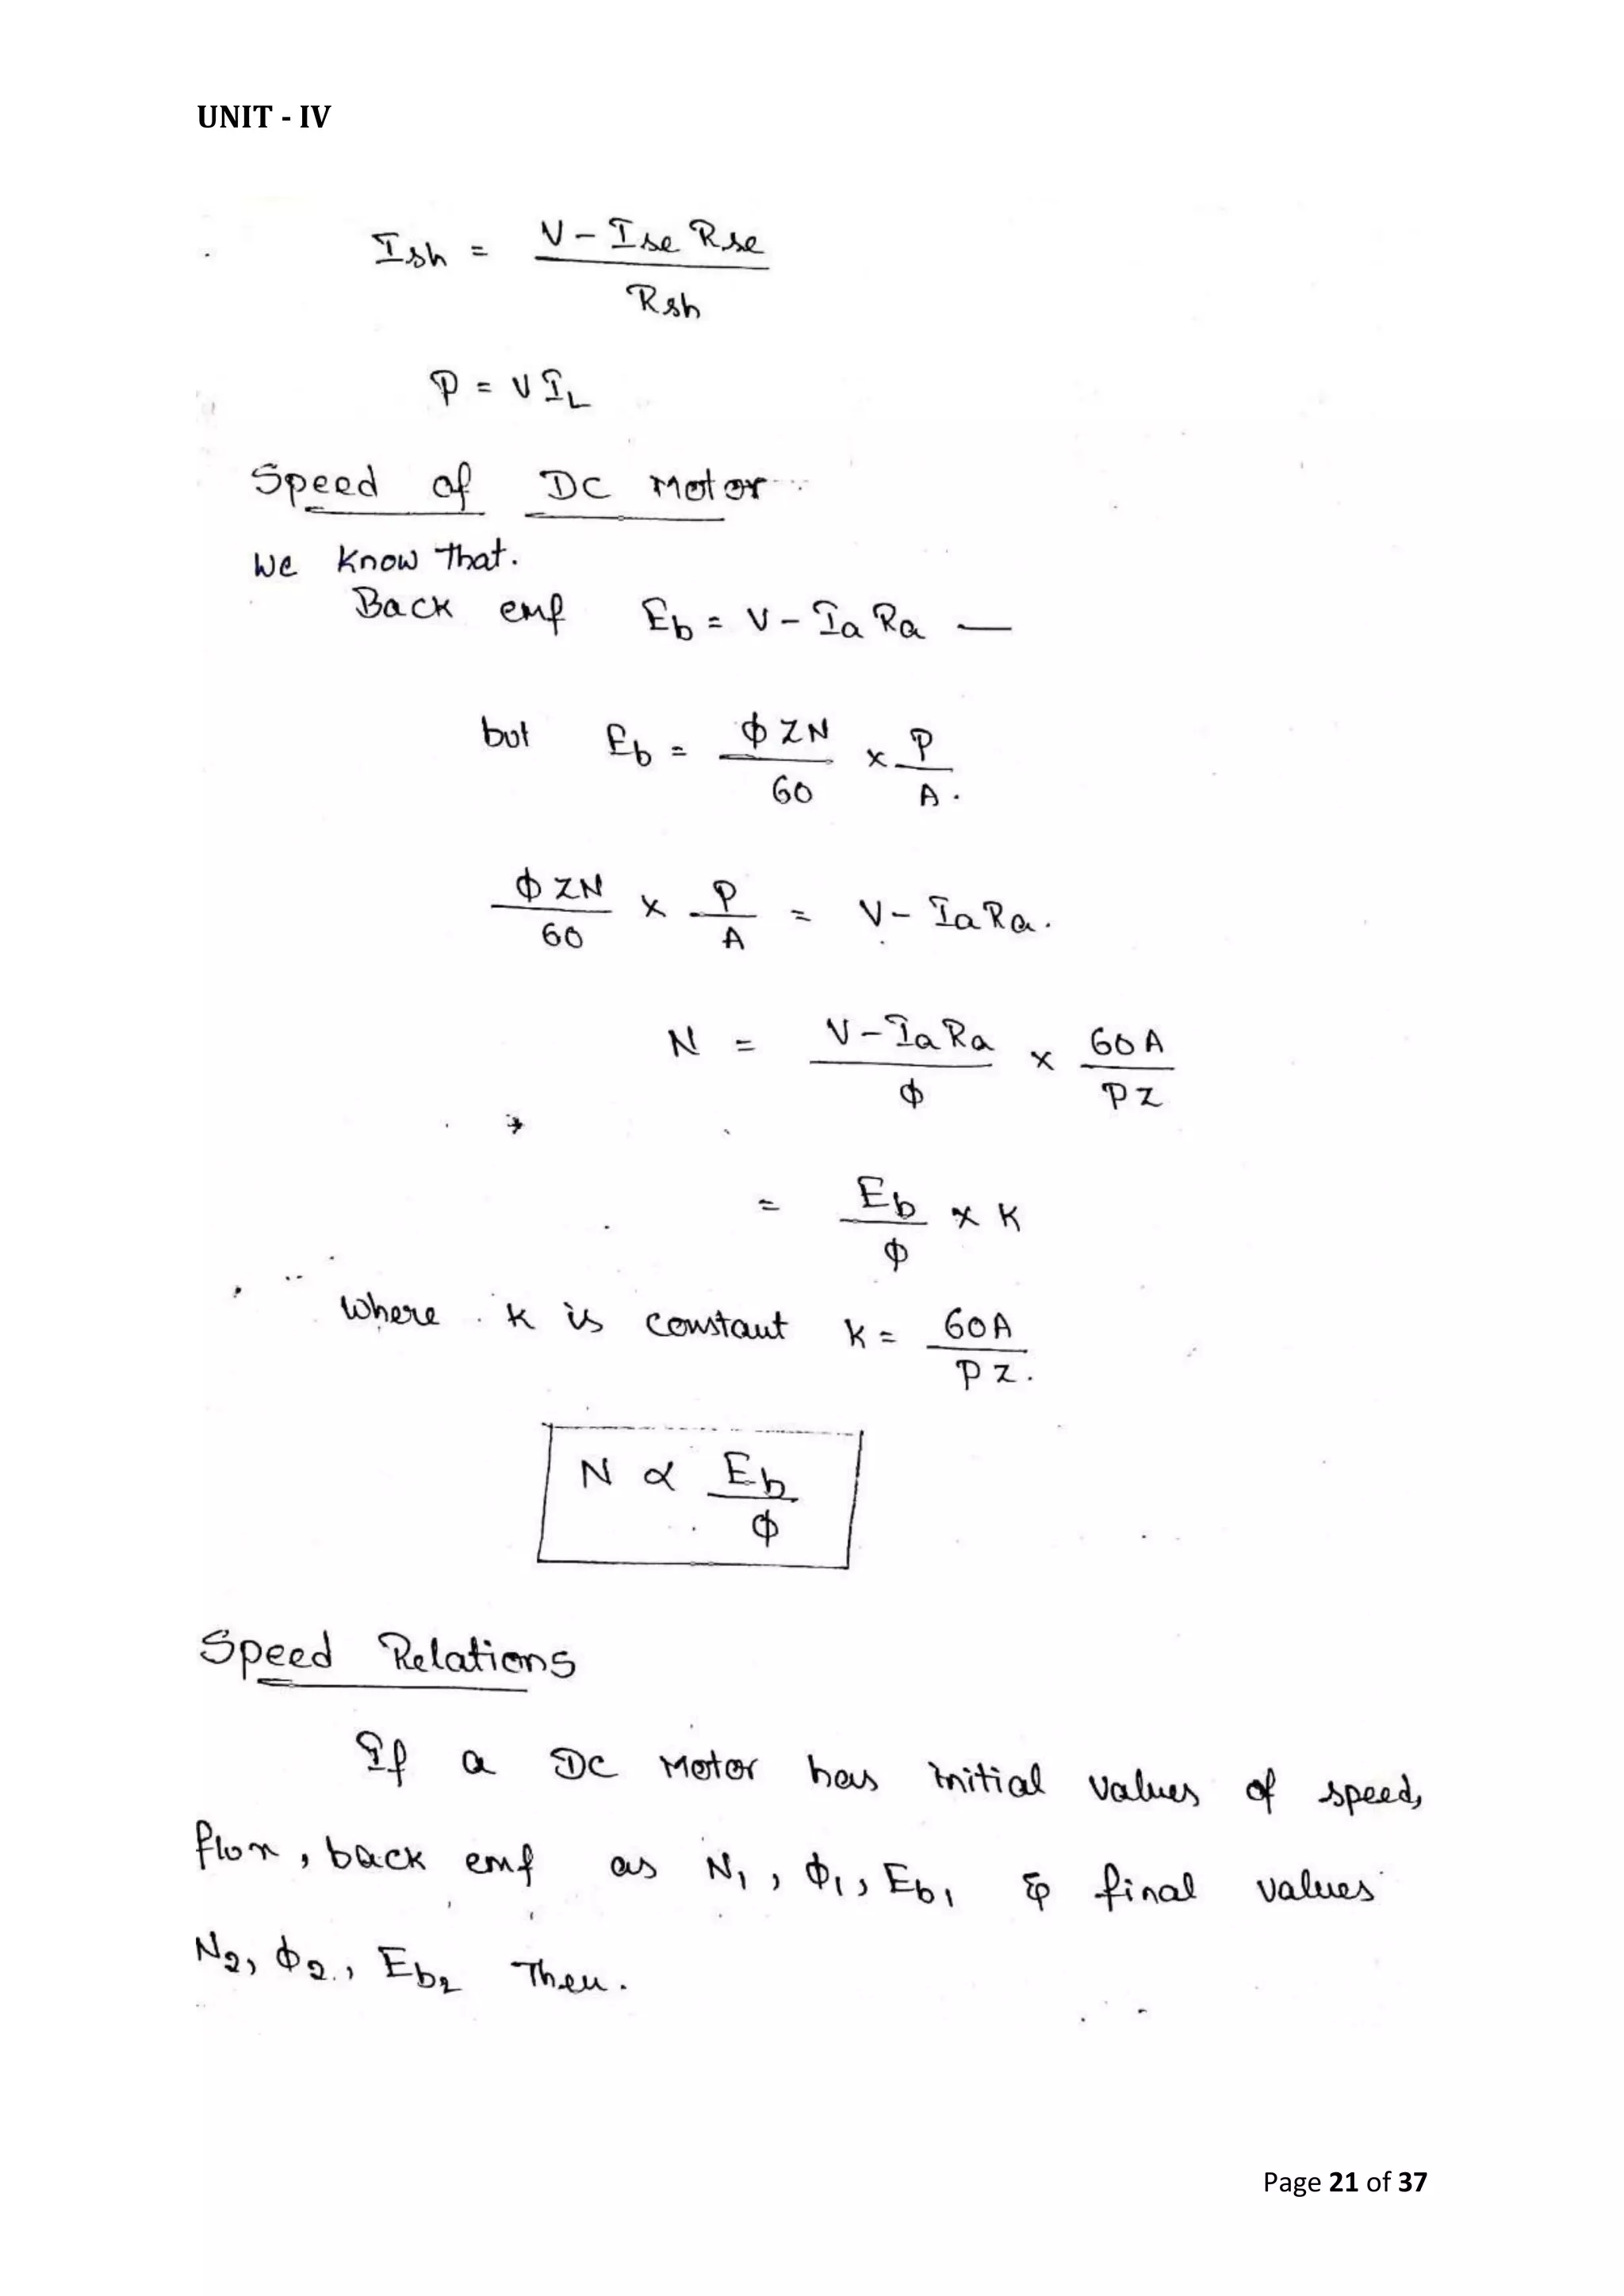 UNIT - IV
Ish = V - Ise Rse / Rsh
P = V IL
Speed of DC Motor
We know that.
Back emf Eb = V - Ia Ra —
but Eb = ϕZN / 60 × P / A.
ϕZN / 60 × P / A = V - IaRa.
N = V - IaRa / ϕ × 60A / PZ
= Eb / ϕ × K
where K is constant K = 60A / PZ.
N ∝ Eb / ϕ
Speed Relations
If a DC Motor has initial values of speed,
flux, back emf as N1, ϕ1, Eb1 & final values
N2, ϕ2, Eb2 Then.
Page 21 of 37